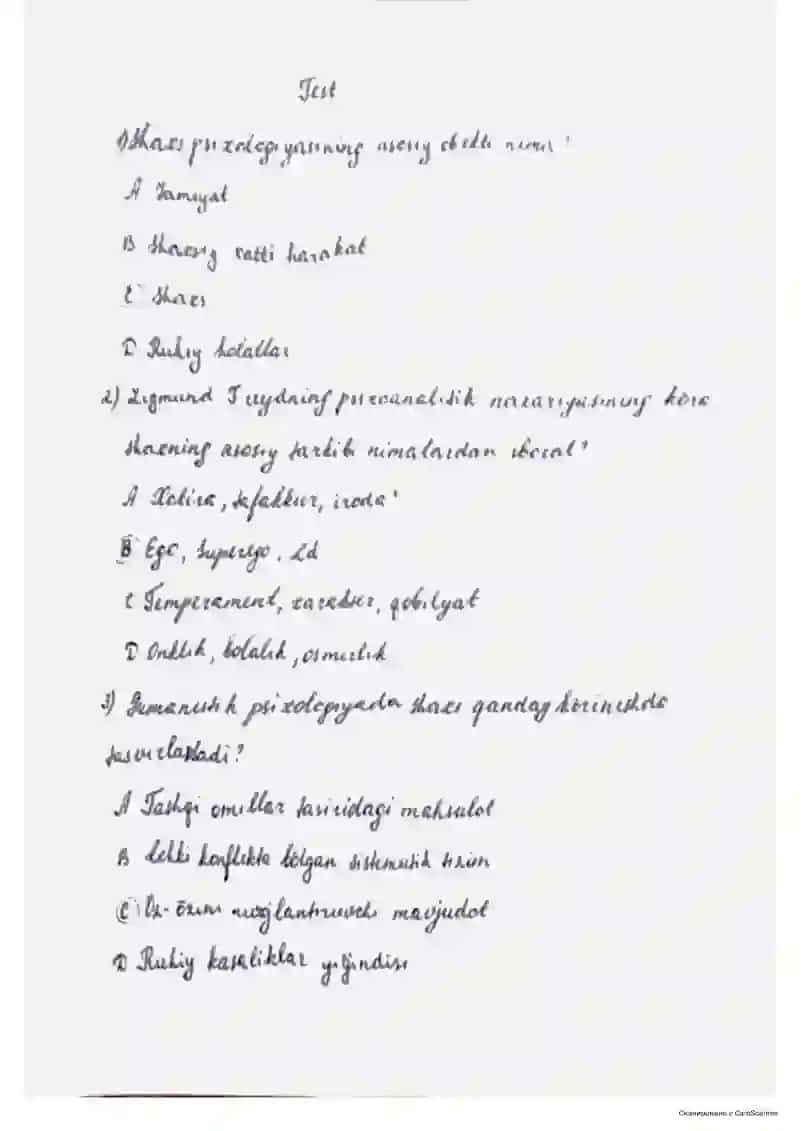 Test
1) Shaxs psixologiyasining asosiy obekti nima?
A Jamiyat
B Shaxsiy xatti harakat
C Shaxs
D Ruhiy holatlar
2) Zigmund Freydning psixoanalitik nazariyasining kŏra
shaxsning asosiy tarkibi nimalardan iborat?
A Xotira, tafakkur, iroda
B Ego, Superego, Id
C Temperament, xarakter, qobilyat
D Onklik, bolalik, osmirlik
3) Gumanistik psixologiyada shaxs qanday kŏrinishda
tasvirlanadi?
A Tashqi omillar tasiridagi mahsulot
B Ichki konflikta bŏlgan sistematik tizim
C Oz-ŏzini rivojlantiruvchi mavjudot
D Ruhiy kasaliklar yiğindisi
Сканировано с CamScanner